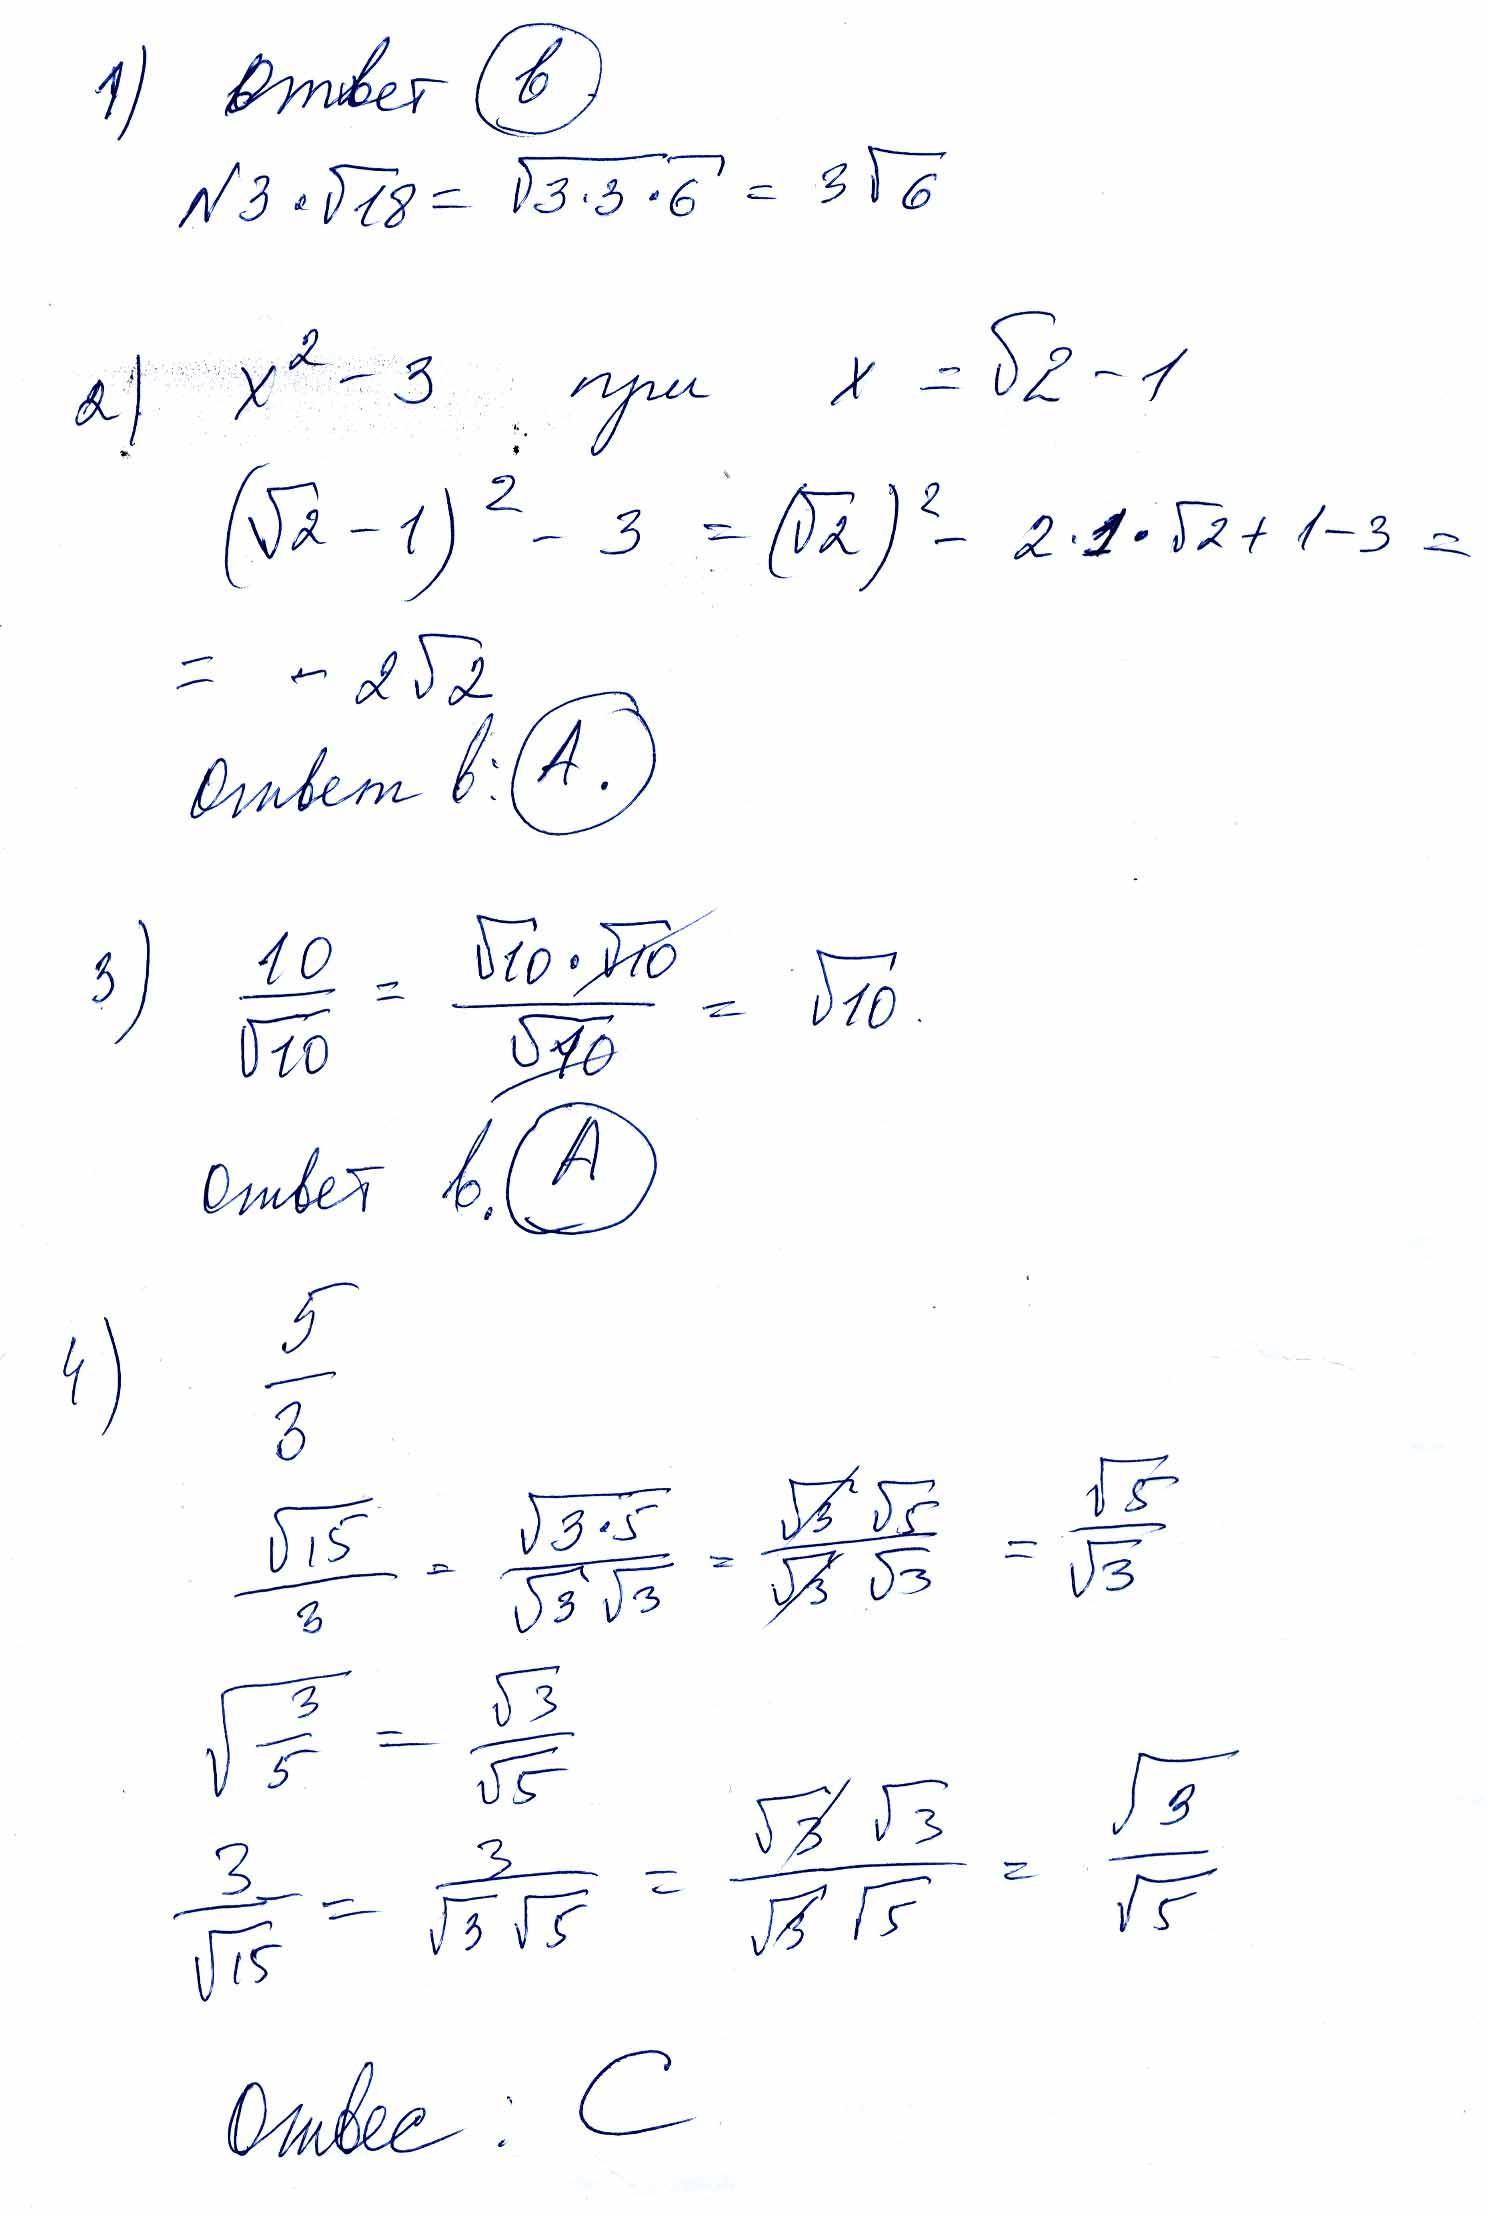 1) Ответ в
√3·√18 = √3·3·6 = 3√6
2) x² - 3 при x = √2 - 1
(√2 - 1)² - 3 = (√2)² - 2·1·√2 + 1 - 3 =
= - 2√2
Ответ в: А.
3) 10/√10 = √10·√10/√10 = √10.
Ответ в. А
4) 5/3
√15/3 = √3·5/√3√3 = √3√5/√3√3 = √5/√3
√3/5 = √3/√5
3/√15 = 3/√3√5 = √3√3/√3√5 = √3/√5
Ответ: С